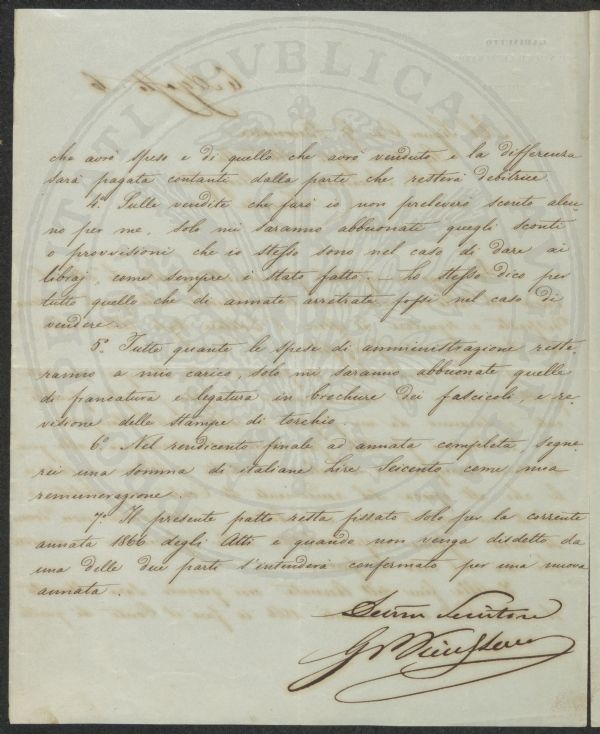 che avrò speso e di quello che avrò venduto e la differenza
sarà pagata contanti dalla parte che resterà debitrice
4.° Sulle vendite che farò io non preleverò sconto alcu-
no per me, solo mi saranno abbuonate quegli sconti
o provvisioni che io stesso sono nel caso di dare ai
libraj, come sempre è stato fatto. — Lo stesso dico per
tutto quello che di annate arretrate fossi nel caso di
vendere.
5.° Tutte quante le spese di amministrazione resta-
ranno a mio carico, solo mi saranno abbuonate quelle
di francatura e legatura in brochure dei fascicoli, e re-
visione delle stampe di torchio.
6.° Nel rendiconto finale ad annata completa, segne-
rei una somma di italiane Lire Seicento come mia
remunerazione.
7.° Il presente patto resta fissato solo per la corrente
annata 1866 degli Atti e quando non venga disdetto da
una delle due parte s'intenderà confermato per una nuova
annata.